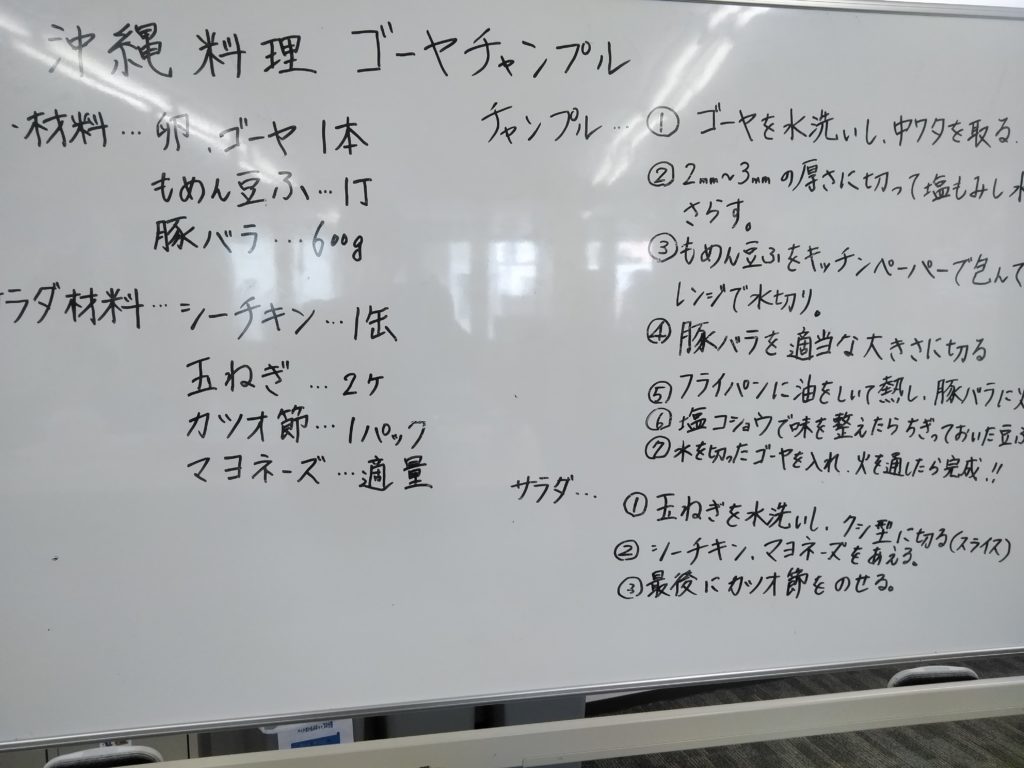 沖縄料理 ゴーヤチャンプル
・材料…卵、ゴーヤ 1本
もめん豆ふ…1丁
豚バラ…600g
サラダ材料…シーチキン…1缶
玉ねぎ…2ヶ
カツオ節…1パック
マヨネーズ…適量
チャンプル…① ゴーヤを水洗いし、中ワタを取る.
② 2mm~3mmの厚さに切って塩もみし水
さらす。
③もめん豆ふをキッチンペーパーで包んで
レンジで水切り。
④ 豚バラを適当な大きさに切る
⑤ フライパンに油をしいて熱し、豚バラに火
⑥ 塩コショウで味を整えたらちぎっておいた豆ふ
⑦ 水を切ったゴーヤを入れ、火を通したら完成!!
サラダ…
① 玉ねぎを水洗いし、クシ型に切る(スライス)
② シーチキン、マヨネーズをあえる。
③最後にカツオ節をのせる。